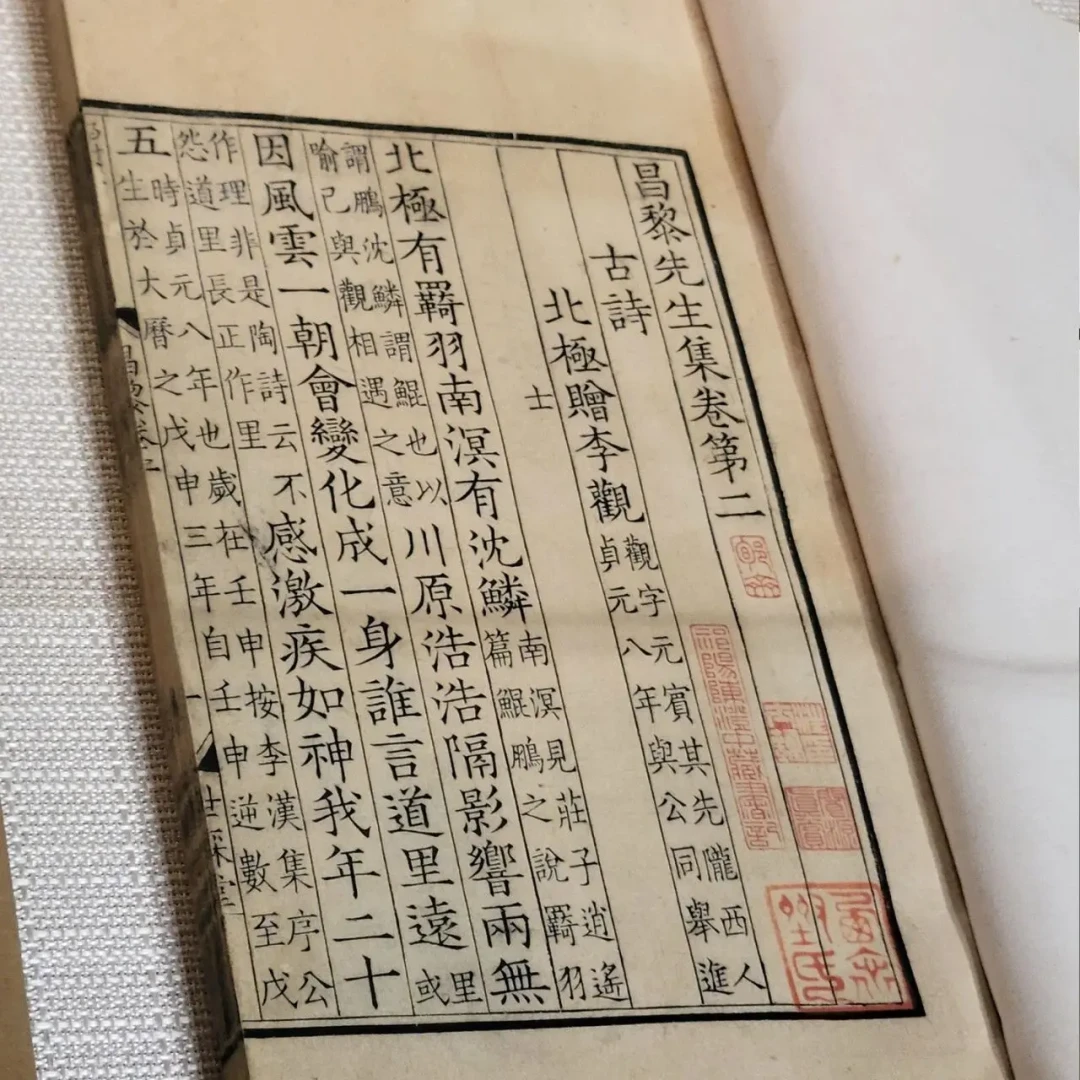 昌黎先生集卷第二
古詩
北極贈李觀
觀字元賓其先隴西人
貞元八年與公同舉進
士
北極有羇羽南溟有沈鱗
南溟見莊子逍遙
篇鯤鵬之說羇羽
謂鵬沈鱗謂鯤也以
喻己與觀相遇之意
川原浩浩隔影響兩無
因風雲一朝會變化成一身誰言道里遠
里
或
作理非是陶詩云不
怨道里長正作里
感激疾如神我年二十
五
時貞元八年也歲在壬申按李漢集序公
生於大曆之戊申三年自壬申逆數至戊
一
祁陽陳澄中藏書記